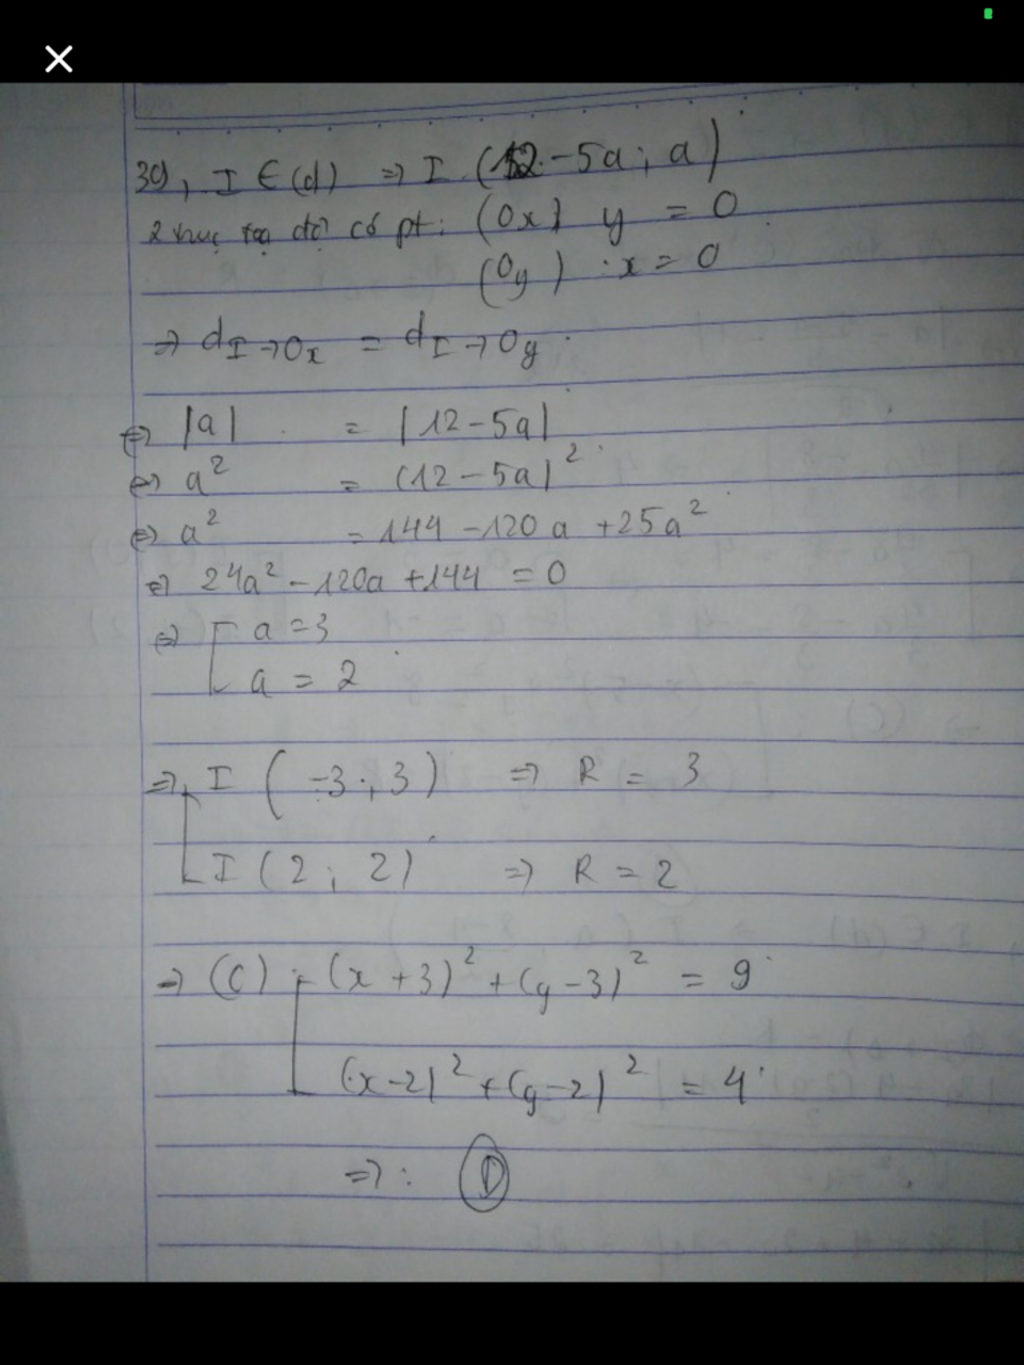 39, I ∈ (d) ⇒ I (12 - 5a ; a)
2 trục tọa độ có pt: (Ox) y = 0
(Oy) : x = 0
⇒ d I→Ox = d I→Oy
⇔ |a| = |12 - 5a|
⇔ a² = (12 - 5a)²
⇔ a² = 144 - 120a + 25a²
⇔ 24a² - 120a + 144 = 0
⇔ [ a = 3
a = 2
⇒ [ I (-3 ; 3) ⇒ R = 3
I (2 ; 2) ⇒ R = 2
⇒ (C) : [ (x + 3)² + (y - 3)² = 9
(x - 2)² + (y - 2)² = 4
⇒ : D